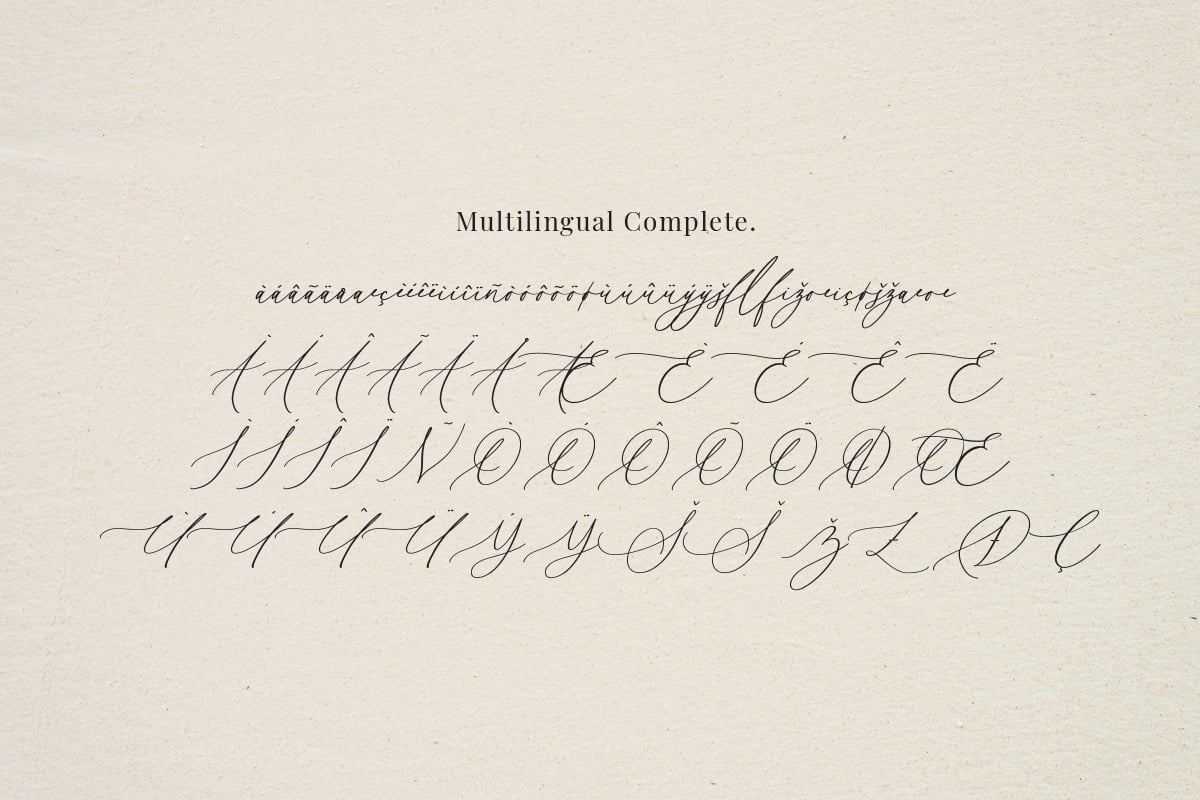 Multilingual Complete.
àáâãäåæçèéêëìíîïñòóôõöøùúûüýÿšflfižœ
ÀÁÂÃÄÅÆÈÉÊË
ÌÍÎÏÑÒÓÔÕÖØŒ
ÙÚÛÜÝŸŠŠŽŁÐÇ